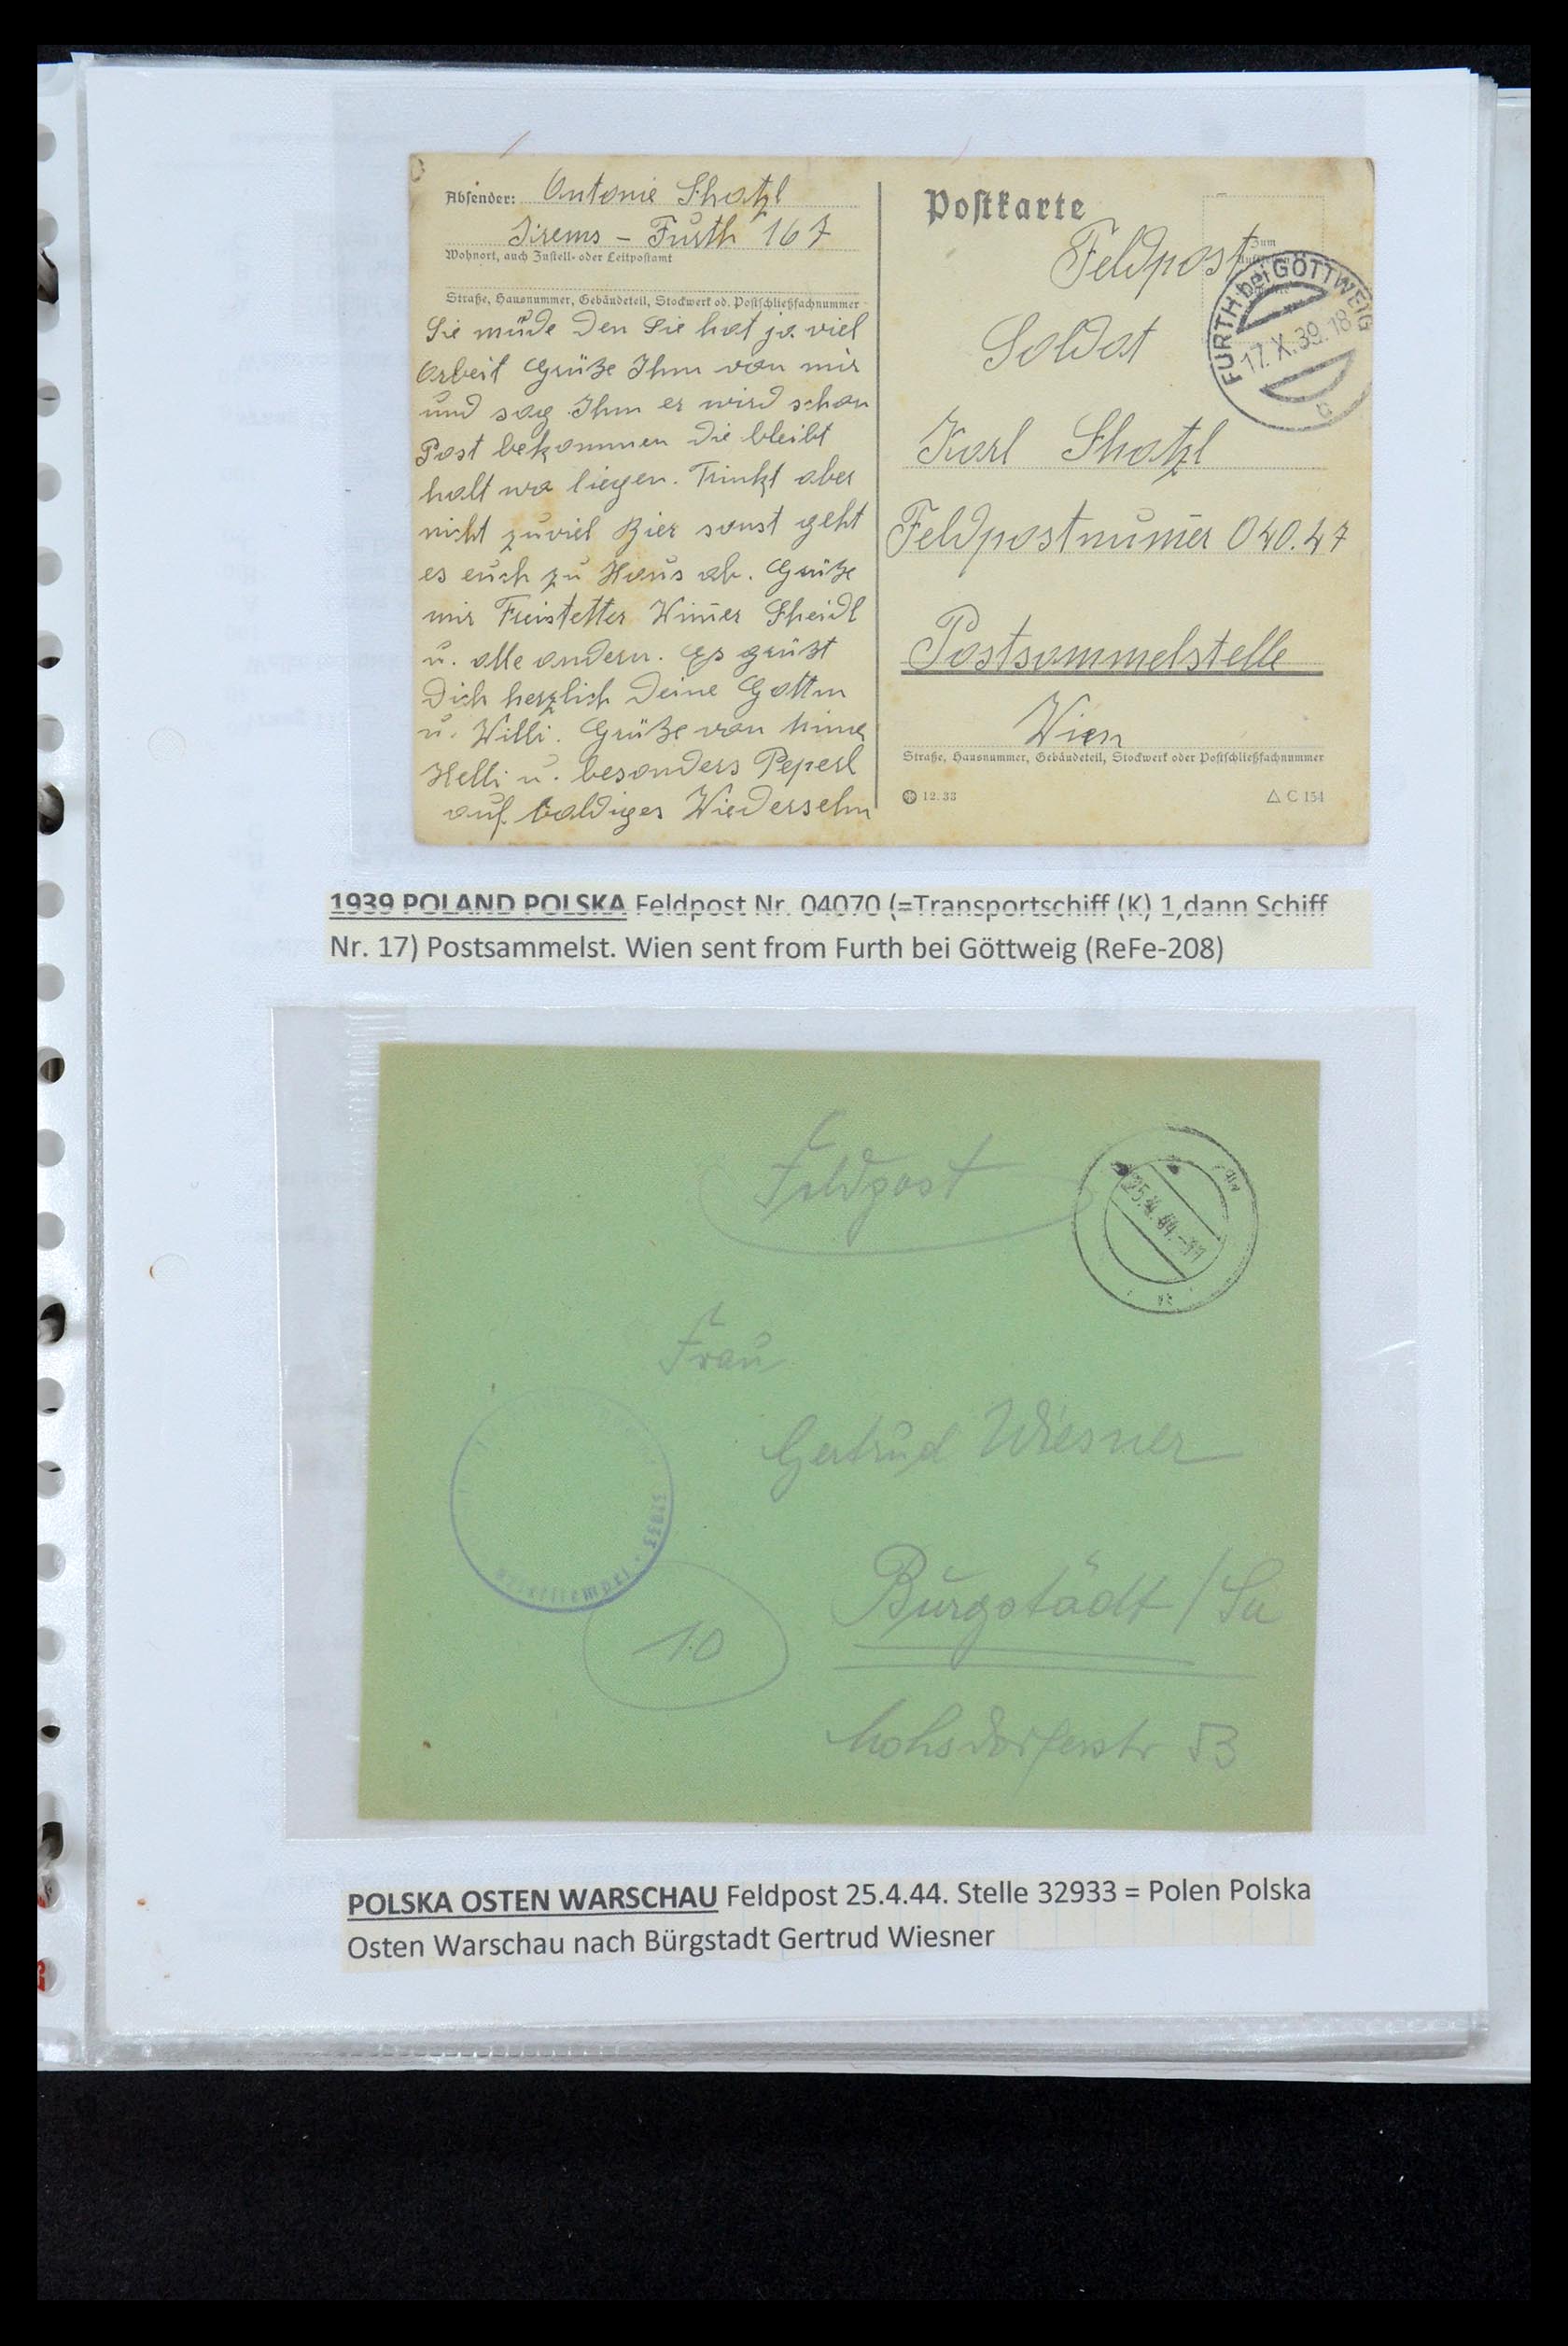 Absender: Antonie Shatzl
Furth 167
Wohnort, auch Zustell- oder Leitpostamt
Straße, Hausnummer, Gebäudeteil, Stockwerk od. Postschließfachnummer
Sie müde den Sie hat ja viel
Arbeit Grüße Ihm von mir
und sag Ihm er wird schon
Post bekommen die bleibt
halt wo liegen. Trinkt aber
nicht zuviel Bier sonst geht
es euch zu Haus ab. Grüße
mir Freistetter Wim̄er Sheidl
u. alle andern. Es grüßt
Dich herzlich Deine Gattin
u. Willi. Grüße von
Helli u. besonders Peperl
auf baldiges Wiedersehn
Postkarte
Feldpost
Zum
FURTH bei GÖTTWEIG
17.X.39.18
b
Soldat
Karl Shatzl
Feldpostnum̄er 040.47
Postsammelstelle
Wien
Straße, Hausnummer, Gebäudeteil, Stockwerk oder Postschließfachnummer
12.33
C 154
1939 POLAND POLSKA Feldpost Nr. 04070 (=Transportschiff (K) 1,dann Schiff
Nr. 17) Postsammelst. Wien sent from Furth bei Göttweig (ReFe-208)
Feldpost
25.4.44.-11
Frau
Gertrud Wiesner
32933
Burgstädt / Sa
10
Mohsdorferstr 53
POLSKA OSTEN WARSCHAU Feldpost 25.4.44. Stelle 32933 = Polen Polska
Osten Warschau nach Bürgstadt Gertrud Wiesner